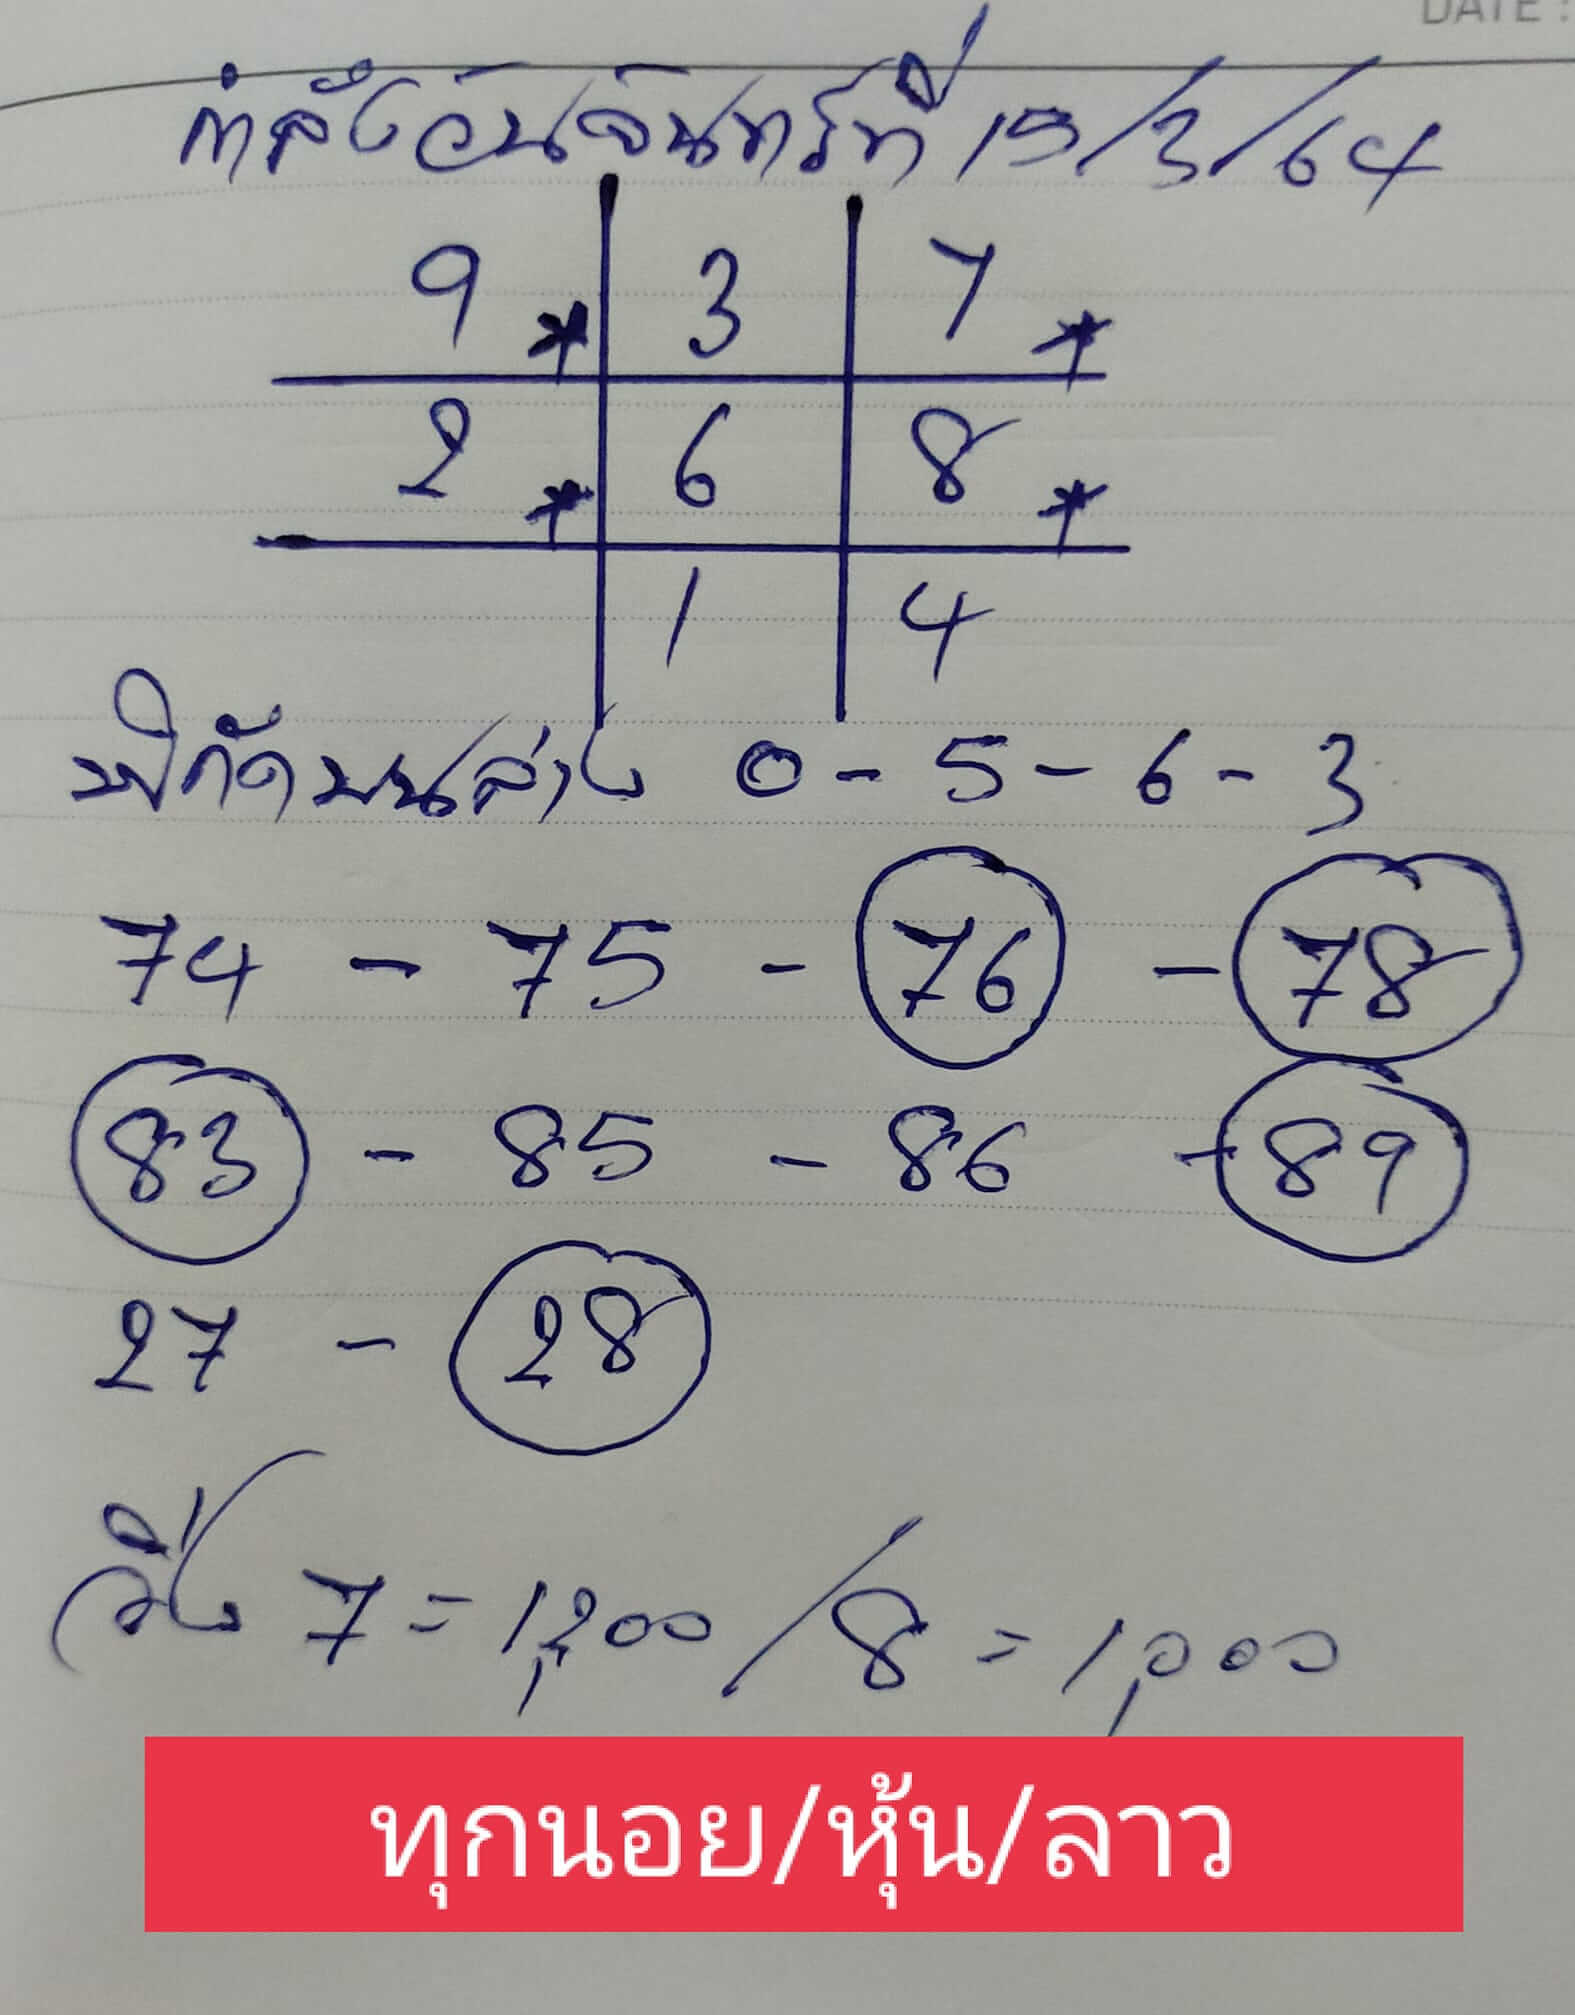 DATE :
กำลังวันจันทร์ที่ 15/3/64
9* 3 7*
2* 6 8*
1 4
พิกัดบนล่าง 0-5-6-3
74 - 75 - 76 - 78
83 - 85 - 86 - 89
27 - 28
วิ่ง 7 = 1,200 / 8 = 1,000
ทุกนอย/หุ้น/ลาว